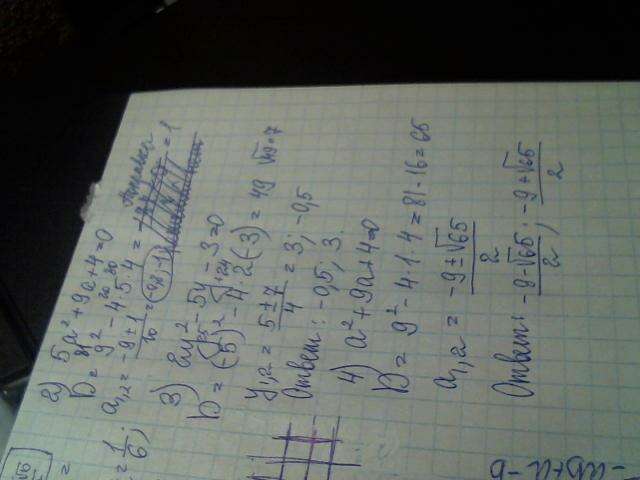 2) 5a² + 9a + 4 = 0
D = 9² - 4 · 5 · 4 = = 1
a₁,₂ = (-9 ± 1)/10 =
3) 2y² - 5y - 3 = 0
D = (-5)² - 4 · 2(-3) = 49 √49 = 7
y₁,₂ = (5 ± 7)/4 = 3; -0,5
Ответ: -0,5; 3.
4) a² + 9a + 4 = 0
D = 9² - 4 · 1 · 4 = 81 - 16 = 65
a₁,₂ = (-9 ± √65)/2
Ответ: (-9 - √65)/2; (-9 + √65)/2
= 1/6;